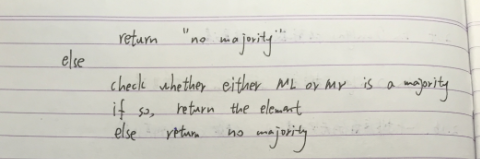 return "no majority"
else
check whether either ML or Mr is a majority
if so, return the element
else return no majority